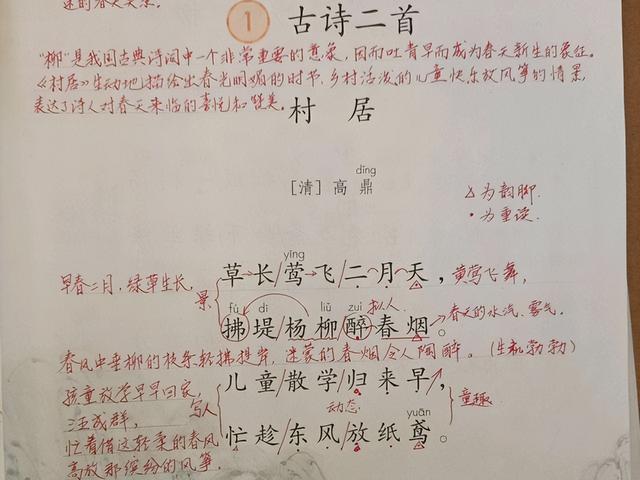 述的春天美景。
1 古诗二首
"柳"是我国古典诗词中一个非常重要的意象，因而吐青早而成为春天新生的象征。
《村居》生动地描绘出春光明媚的时节，乡村活泼的儿童快乐放风筝的情景，
表达了诗人对春天来临的喜悦和赞美。
村 居
dǐng
[清] 高 鼎
△为韵脚
·为重读.
yīng
早春二月，绿草生长， 景 草→长/莺→飞/二月天， 黄莺飞舞，
fú dī liǔ zuì 拟人
拂堤/杨柳醉春烟。 春天的水汽、雾气。
春风中垂柳的枝条轻拂堤岸，迷蒙的春烟令人陶醉。(生机勃勃)
孩童放学早早回家， 儿童/散学/归来早，
汪成群， 写人 动态 童趣
yuān
忙着借这轻柔的春风 忙趁/东风/放纸鸢。
高放那缤纷的风筝。